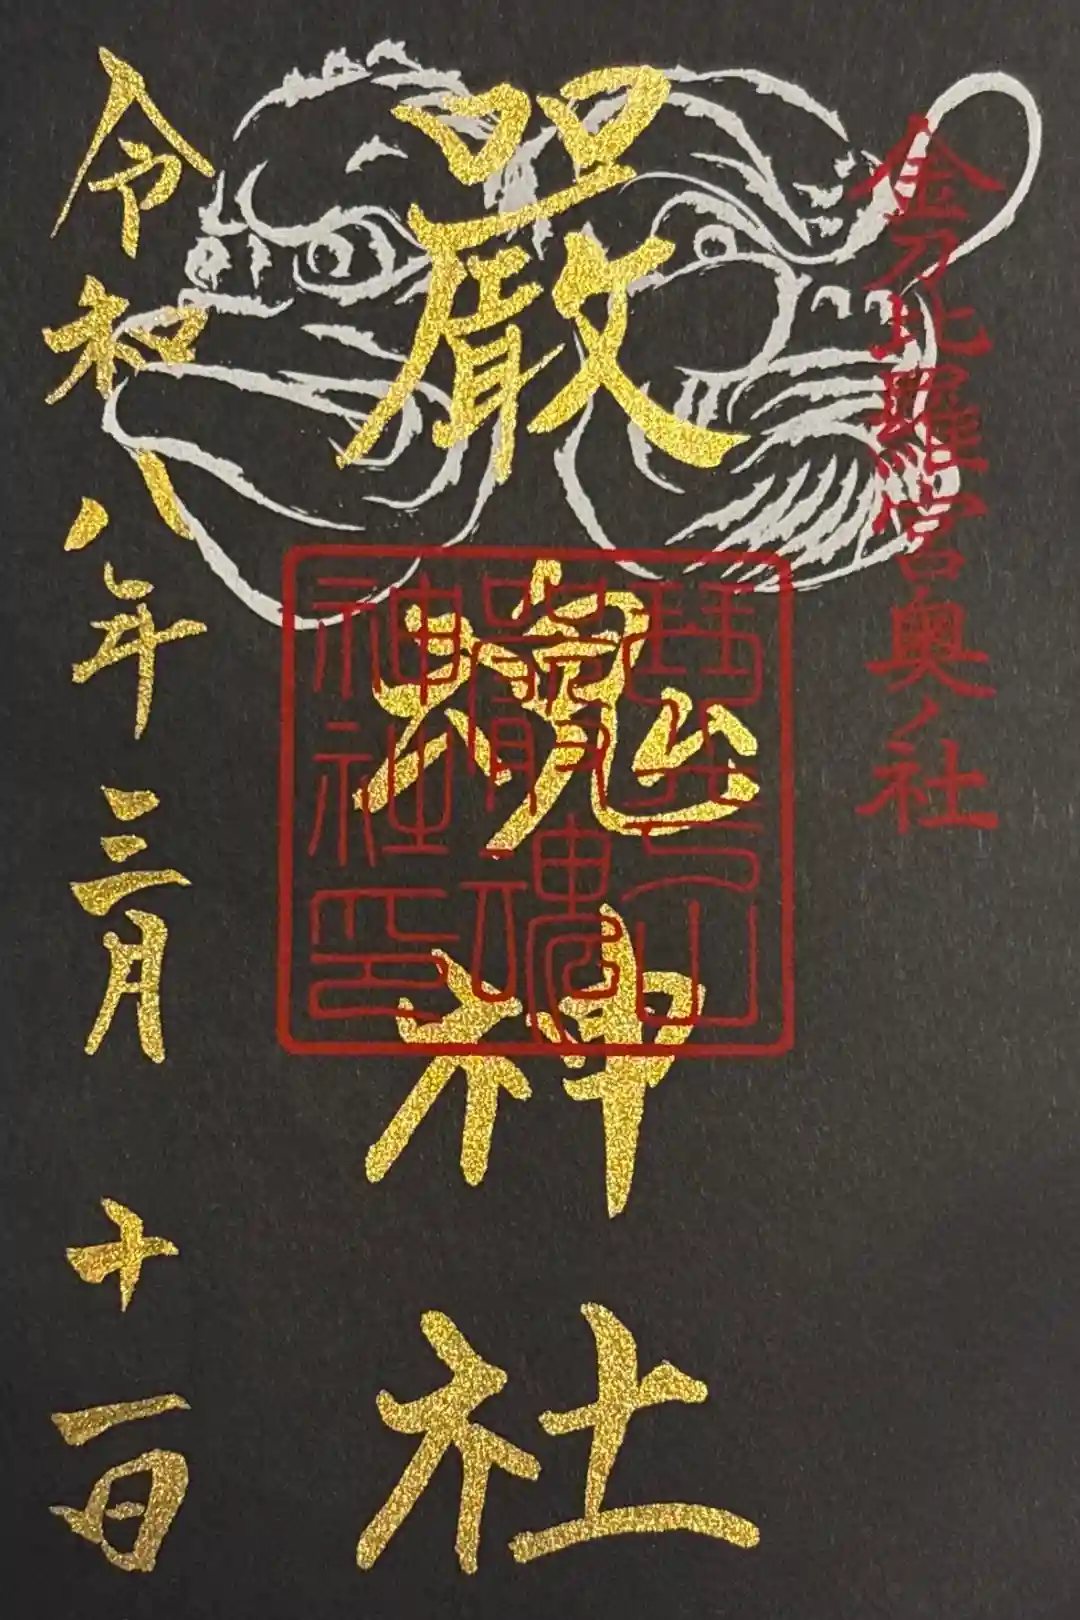 金刀比羅宮奥ノ社
厳魂神社
琴平山
厳魂
神社印
令和八年三月十一日